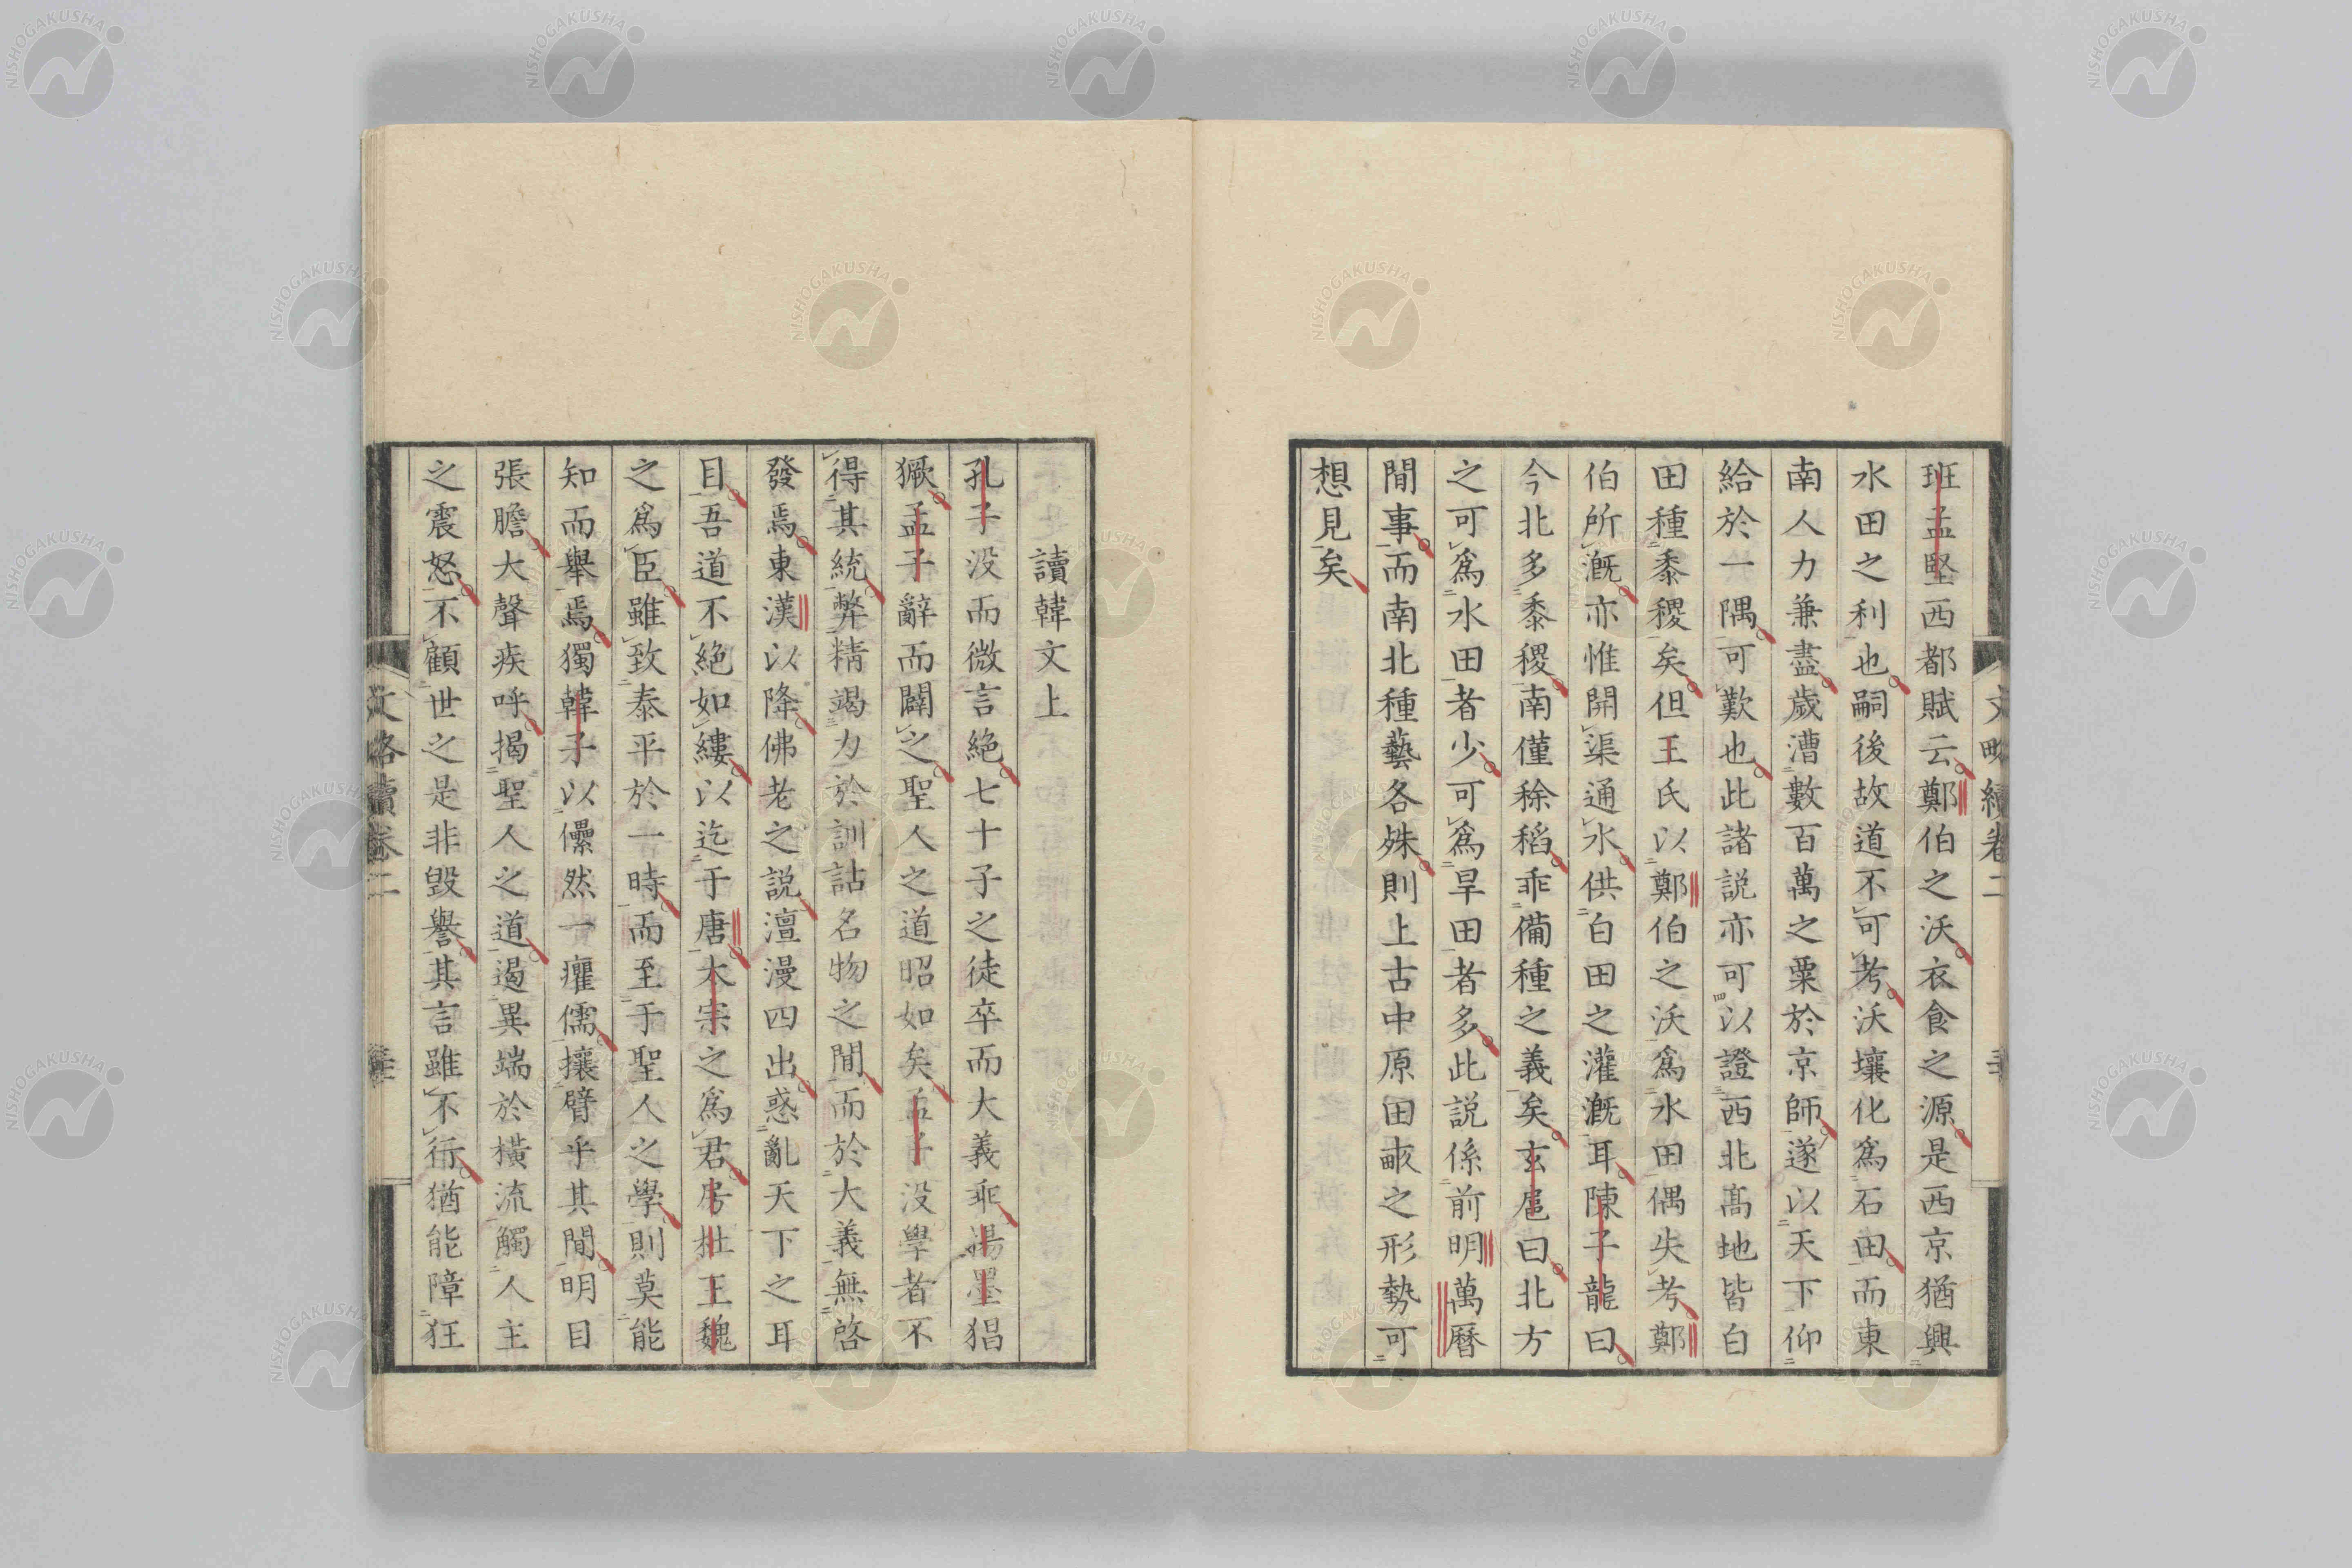 班孟堅西都賦云鄭伯之沃衣食之源是西京猶興
水田之利也嗣後故道不可考沃壤化爲石田而東
南人力兼盡歲漕數百萬之粟於京師遂以天下仰
給於一隅可歎也此諸説亦可以證西北髙地皆白
田種黍稷矣但王氏以鄭伯之沃爲水田偶失考鄭
伯所漑亦惟開渠通水供白田之灌漑耳陳子龍曰
今北多黍稷南僅稌稻乖備種之義矣玄扈曰北方
之可爲水田者少可爲旱田者多此説係前明萬曆
間事而南北種藝各殊則上古中原田畝之形勢可
想見矣
讀韓文上
孔子没而微言絶七十子之徒卒而大義乖揚墨猖
獗孟子辭而闢之聖人之道昭如矣孟子没學者不
得其統弊精竭力於訓詁名物之間而於大義無啓
發焉東漢以降佛老之説澶漫四出惑亂天下之耳
目吾道不絶如縷以迄于唐太宗之爲君房杜王魏
之爲臣雖致泰平於一時而至于聖人之學則莫能
知而舉焉獨韓子以儽然一癯儒攘臂乎其間明目
張膽大聲疾呼揭聖人之道遏異端於橫流觸人主
之震怒不顧世之是非毀譽其言雖不行猶能障狂
文略續卷二
NISHOGAKUSHA